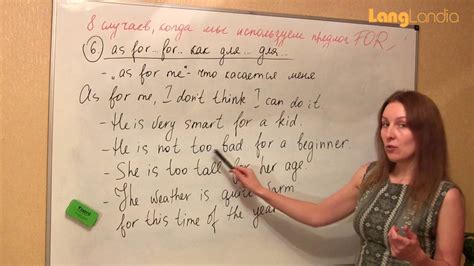 LangLandia
8 случаев, когда мы используем предлог FOR,
6 as for... for.. как для... для...
- "as for me"- что касается меня
As for me, I don't think I can do it
- He is very smart for a kid.
- He is not too bad for a beginner.
- She is too tall for her age
- The weather is quite warm
for this time of the year